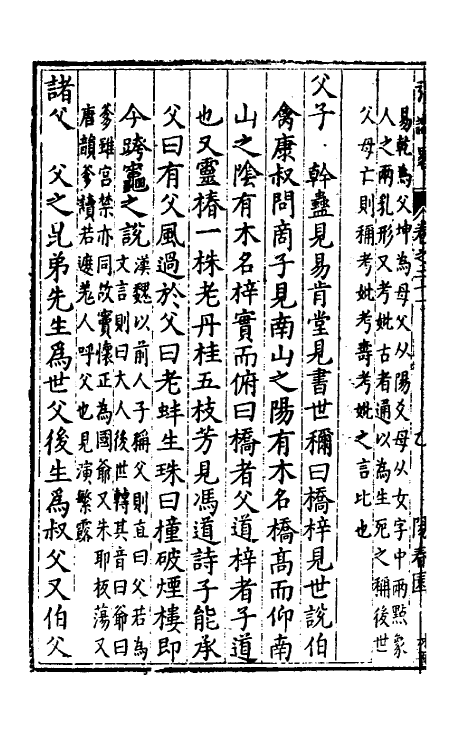 易乾為父坤為母父从陽爻母从女字中兩點象
人之兩乳形又考妣古者通以為生死之稱後世
父母亡則稱考妣考壽考妣之言比也
父子·幹蠱見易肯堂見書世穪曰橋梓見世說伯
禽康叔問商子見南山之陽有木名橋高而仰南
山之陰有木名梓實而俯曰橋者父道梓者子道
也又靈椿一株老丹桂五枝芳見馮道詩子能承
父曰有父風過於父曰老蚌生珠曰撞破煙樓即
今跨竈之說
漢魏以前人子稱父則直曰父若為
文言則曰大人後世轉其音曰爺曰
爹雖宮禁亦同故竇懷正為國爺又朱耶板蕩又
唐韻爹犢若遮羌人呼父也見演繁露
諸父 父之兄弟先生為世父後生為叔父又伯父